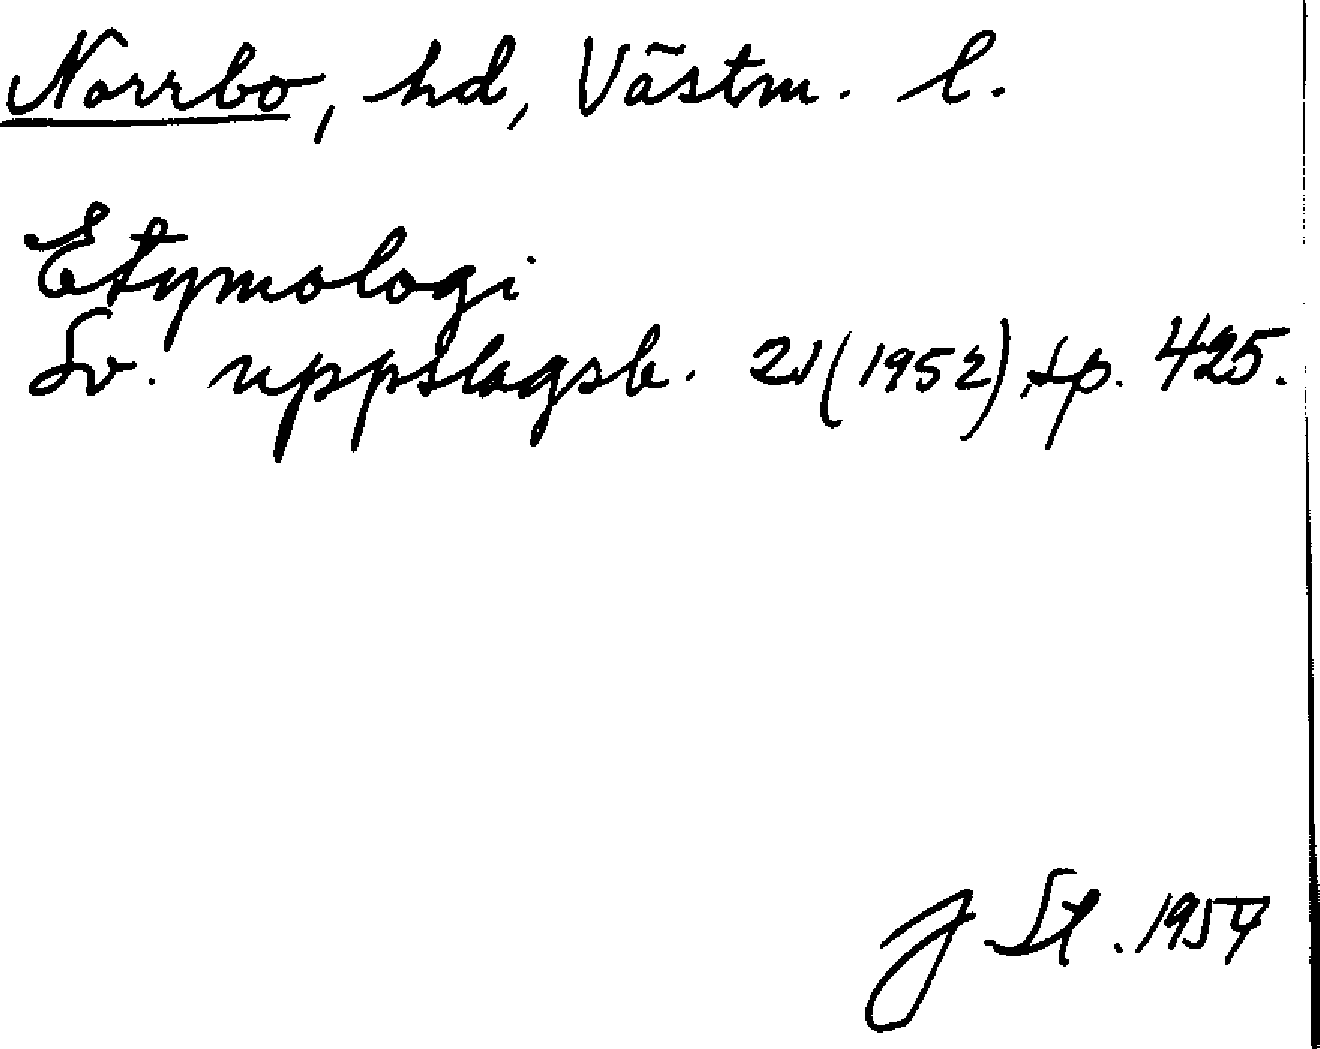 Norrbo, hd, Västm. l.
Etymologi
Sv. uppslagsb. 21 (1952) sp. 425.
J St. 1954